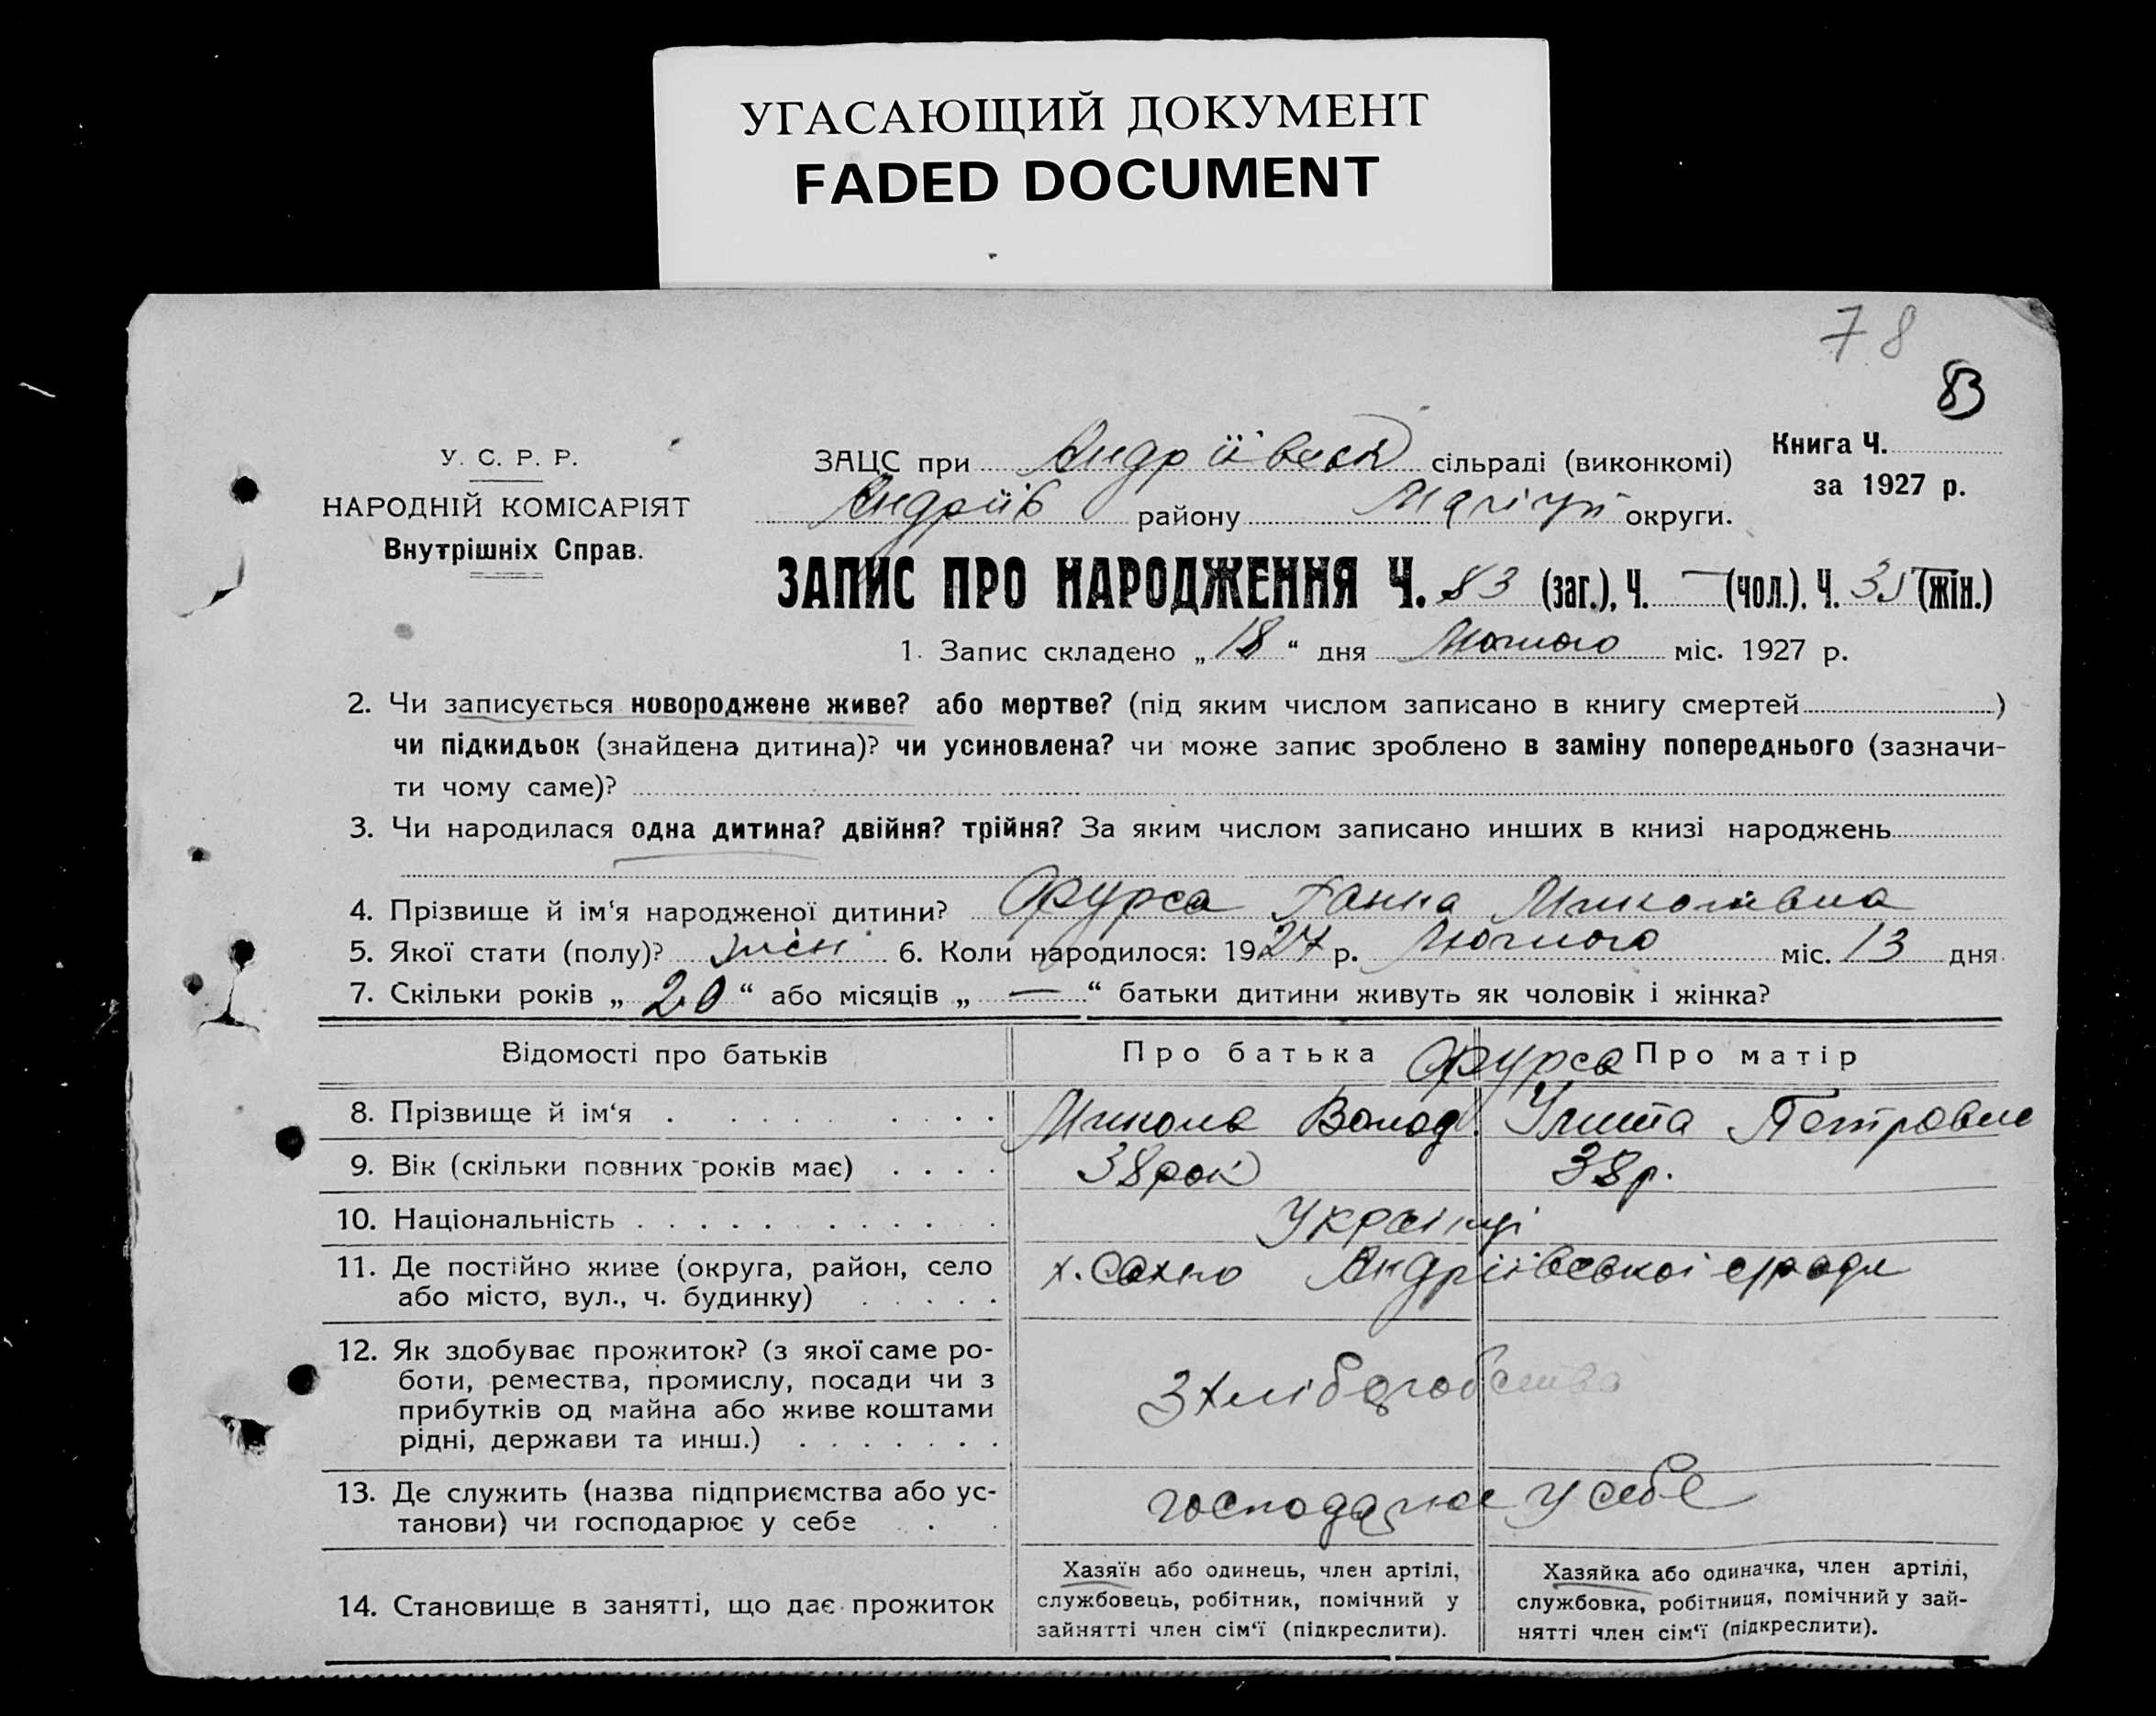 УГАСАЮЩИЙ ДОКУМЕНТ
FADED DOCUMENT
78
83
У. С. Р. Р.
НАРОДНІЙ КОМІСАРІЯТ
Внутрішніх Справ.
ЗАЦС при Андріївськ сільраді (виконкомі)
Андріїв району округи.
Книга Ч.
за 1927 р.
ЗАПИС ПРО НАРОДЖЕННЯ Ч. 83 (заг.), Ч. — (чол.), Ч. (жін.)
1. Запис складено „18“ дня Лютого міс. 1927 р.
2. Чи записується новороджене живе? або мертве? (під яким числом записано в книгу смертей )
чи підкидьок (знайдена дитина)? чи усиновлена? чи може запис зроблено в заміну попереднього (зазначи-
ти чому саме)?
3. Чи народилася одна дитина? двійня? трійня? За яким числом записано инших в книзі народжень
4. Прізвище й ім‘я народженої дитини? Фурса Ганна Миколаївна
5. Якої стати (полу)? жін 6. Коли народилося: 1927 р. Лютого міс. 13 дня
7. Скільки років „20“ або місяців „—“ батьки дитини живуть як чоловік і жінка?
Відомості про батьків
Про батька
Фурса
Про матір
8. Прізвище й ім‘я
Микола Волод.
Улита Петровна
9. Вік (скільки повних років має)
38 рок
38 р.
10. Національність
Українці
11. Де постійно живе (округа, район, село
або місто, вул., ч. будинку)
х. Сахно Андріївської с/ради
12. Як здобуває прожиток? (з якої саме ро-
боти, ремества, промислу, посади чи з
прибутків од майна або живе коштами
рідні, держави та инш.)
З хліборобства
13. Де служить (назва підприємства або ус-
танови) чи господарює у себе
господарює у себе
14. Становище в занятті, що дає прожиток
Хазяїн або одинець, член артілі,
службовець, робітник, помічний у
зайнятті член сім‘ї (підкреслити).
Хазяйка або одиначка, член артілі,
службовка, робітниця, помічний у зай-
нятті член сім‘ї (підкреслити).